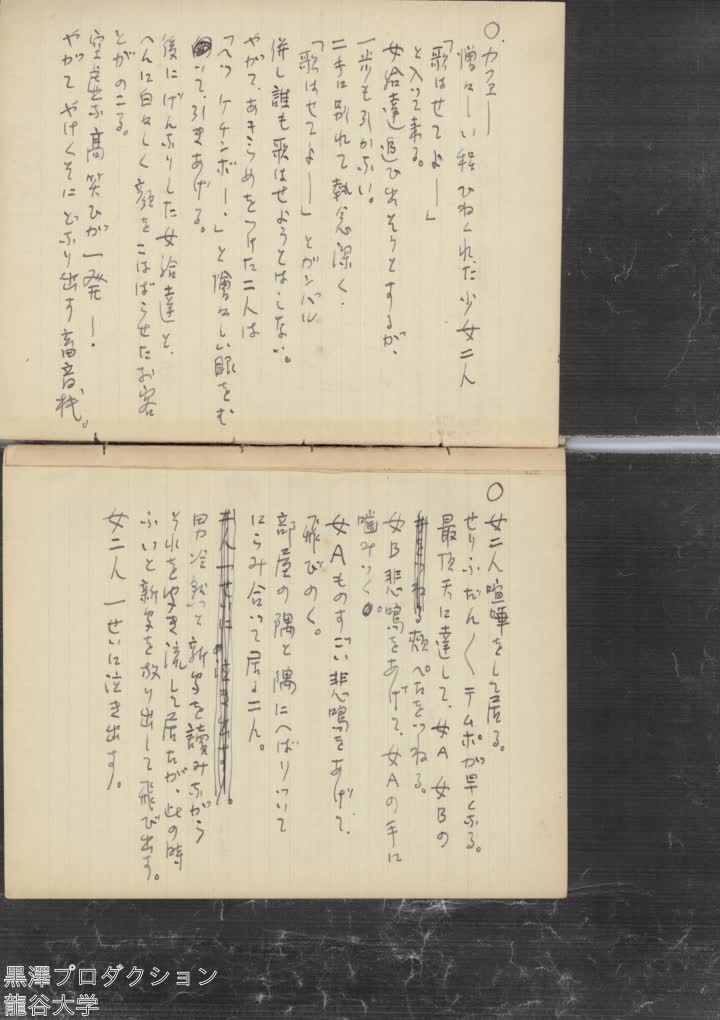 ○.カフェー
憎々しい程ひねくれた少女二人
「歌はせてよ——」
と入って来る。
女給達追ひ出そうとするが、
一歩も引かない。
二手に別れて執念深く.
「歌はせてよ——」とガンバル
併し誰も歌はせようとはしない。
やがて、あきらめをつけた二人は
「ヘッ ケチンボー.」と憎々しい眼をむ
いて、引きあげる。
後にげんなりした女給達と、
へんに白々しく顔をこはばらせたお客
とがのこる。
空虚な高笑ひが一発——.
やがてやけくそにどなり出す畜音機。
○ 女二人喧嘩をして居る。
せりふだん〱テムポが早くなる。
最頂天に達して、女A 女Bの
頰ぺたをつねる。
女B悲鳴をあげて、女Aの手に
噛みつく。
女Aものすごい悲鳴をあげて、
飛びのく。
部屋の隅と隅にへばりついて
にらみ合って居る二人。
二人一せいに泣き出す。
男冷然と新聞を讀みながら
それを聞き流して居たが、此の時
ふいと新聞を放り出して飛び出す。
女二人 一せいに泣き出す。
黒澤プロダクション
龍谷大学